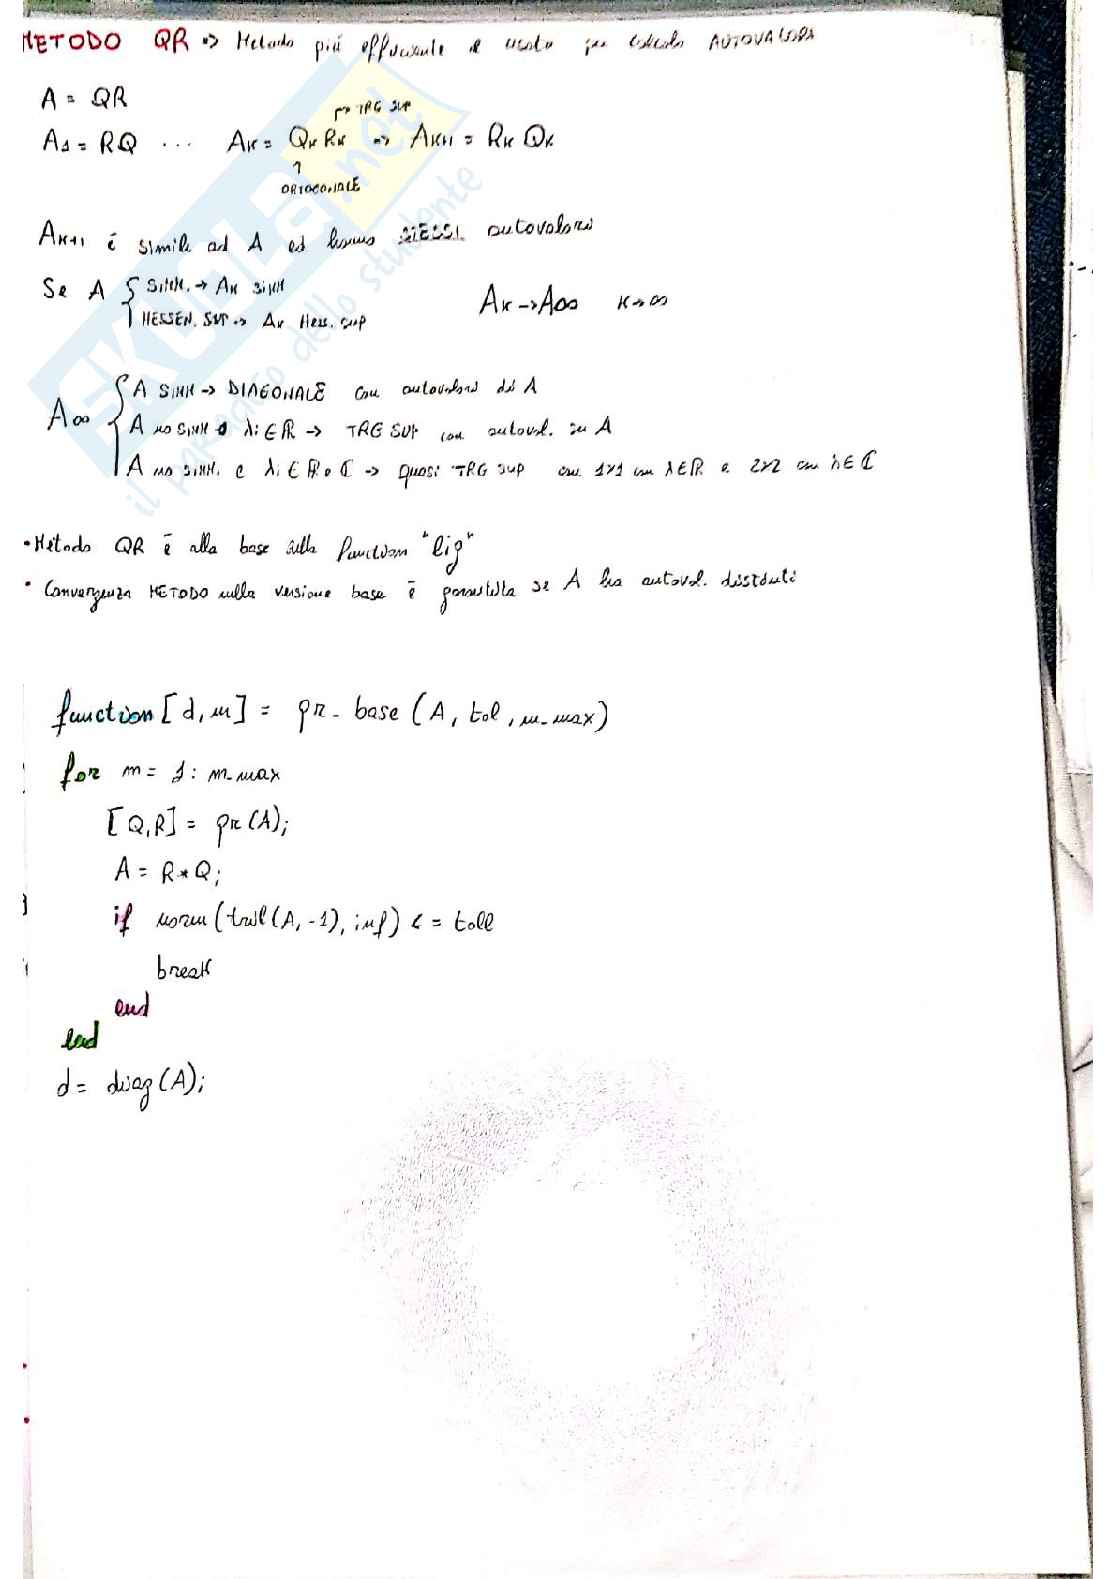 METODO QR => Metodo più efficiente e usato per calcolo AUTOVALORI
A = QR
→ TRG SUP
A1 = RQ ... AK = QK RK => AK+1 = RK QK
↑
ORTOGONALE
AK+1 è simile ad A ed hanno STESSI autovalori
Se A { SIMM. → AK SIMM
HESSEN. SUP → AK Hess. sup
AK → A∞ K→∞
A∞ { A SIMM → DIAGONALE con autovalori di A
A no SIMM e λi ∈ ℝ → TRG SUP con autoval. su A
A no SIMM. e λi ∈ ℝ o ℂ → quasi TRG SUP con 1x1 con λ∈ℝ e 2x2 con λ∈ℂ
• Metodo QR è alla base della function "eig"
• Convergenza METODO nella versione base è garantita se A ha autoval. distinti
function [d, m] = qr_base (A, tol, m_max)
for m = 1 : m_max
[Q,R] = qr(A);
A = R*Q;
if norm(tril(A, -1), inf) <= toll
break
end
end
d = diag(A);
SKUOLA.net
il paradiso dello studente